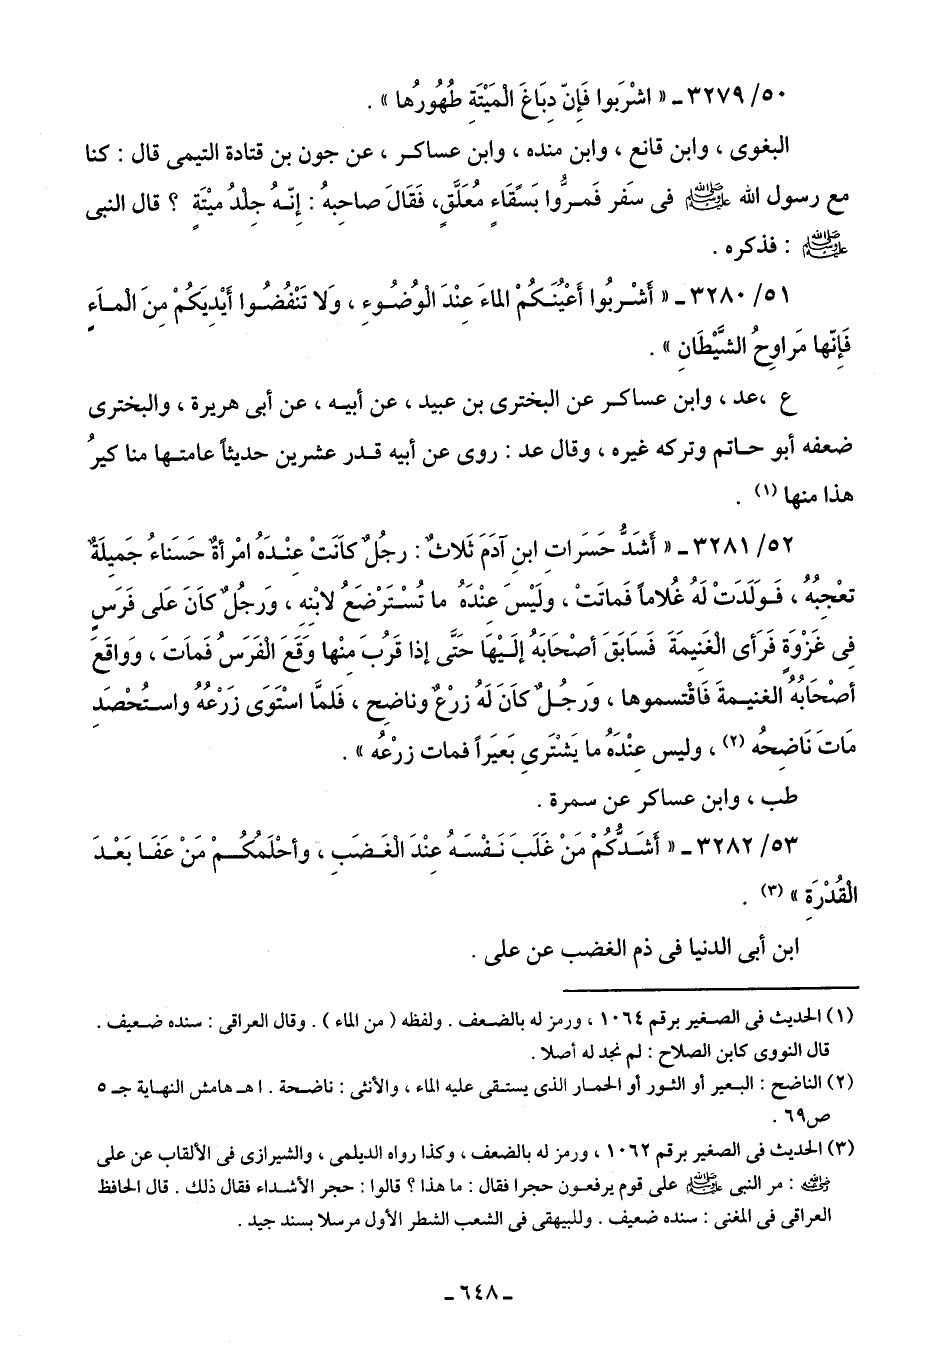 ٥٠/ ٣٢٧٩ ـ « اشْرَبوا فَإِنّ دِبَاغَ الْمَيْتَةِ طُهُورُها » .
البغوى ، وابن قانع ، وابن منده ، وابن عساكر ، عن جون بن قتادة التيمى قال : كنا
مع رسول الله ﷺ فى سَفر فَمرُّوا بَسقَّاءٍ مُعَلَّقٍ، فَقَالَ صاحبهُ : إِنّهُ جلدُ ميْتَةٍ ؟ قال النبى
ﷺ : فذكره .
٥١/ ٣٢٨٠ ـ « أَشْربُوا أَعْيُنَكُمْ الماءَ عِنْدَ الْوُضُوءِ ، وَلا تَنْفُضُوا أَيْدِيَكُمْ مِنَ المـاءِ
فَإِنّها مَراوِحُ الشَّيْطَانِ » .
ع ،عد ، وابن عساكر عن البخترى بن عبيد ، عن أبيه ، عن أبى هريرة ، والبخترى
ضعفه أبو حاتم وتركه غيره ، وقال عد : روى عن أبيه قدر عشرين حديثاً عامتها منا كيرُ
هذا منها (١) .
٥٢/ ٣٢٨١ ـ « أَشَدُّ حَسَرات ابنِ آدَمَ ثَلاثٌ : رجُلٌ كَانَتْ عِنْدَهُ امْرأةٌ حَسَناءُ جَميلَةٌ
تعْجِبُهُ ، فَولَدَتْ لَهُ غُلاماً فَماتَتْ ، وليْسَ عِنْدَهُ ما تُسْتَرضَعُ لابْنِهِ ، وَرجُلٌ كَانَ عَلى فَرَسٍ
فِى غَزْوَةٍ فَرَأى الْغَنِيمَةَ فَسَابَقَ أصْحَابَهُ إِلَيْهَا حَتَّى إذا قَرُبَ مِنْها وَقَعَ الْفَرَسُ فَماتَ ، وواقَعَ
أصْحَابُهُ الغنِيمَةَ فَاقْتسموها ، وَرجُلٌ كَانَ لَهُ زرْعٌ وناضِح ، فَلمَّا اسْتَوَى زَرْعُهُ واستُحْصِدَ
مَاتَ نَاضِحُه (٢) ، وليس عِنْدَهُ ما يَشْتَرِى بَعيَراً فمات زرْعُه » .
طب ، وابن عساكر عن سمرة .
٥٣/ ٣٢٨٢ ـ « أَشَدُّكُمْ مَنْ غَلَبَ نَفْسَهُ عِنْدَ الْغَضَبِ ، وأحْلَمُكُمْ مَنْ عَفَا بَعْدَ
الْقُدْرَةِ » (٣) .
ابن أبى الدنيا فى ذم الغضب عن على .
(١) الحديث فى الصغير برقم ١٠٦٤ ، ورمز له بالضعف . ولفظه ( من الماء ) . وقال العراقى : سنده ضعيف .
قال النووى كابن الصلاح : لم نجد له أصلا .
(٢) الناضح : البعير أو الثور أو الحمار الذى يستقى عليه الماء ، والأنثى : ناضحة . اهـ هامش النهاية جـ ٥
ص٦٩ .
(٣) الحديث فى الصغير برقم ١٠٦٢ ، ورمز له بالضعف ، وكذا رواه الديلمى ، والشيرازى فى الألقاب عن على
: مر النبى ﷺ على قوم يرفعون حجرا فقال : ما هذا ؟ قالوا : حجر الأشداء فقال ذلك . قال الحافظ
العراقى فى المغنى : سنده ضعيف . وللبيهقى فى الشعب الشطر الأول مرسلا بسند جيد .
ـ ٦٤٨ ـ